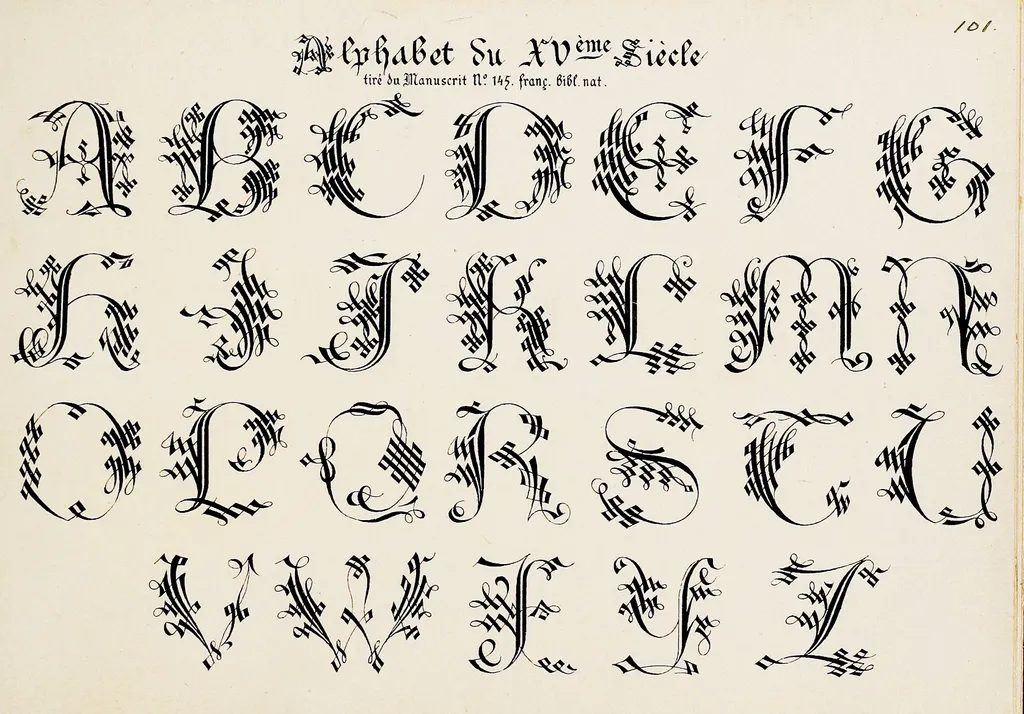 101.
Alphabet du XVème Siècle
tiré du Manuscrit No. 145. franç. bibl. nat.
A B C D E F G
H I J K L M N
O P Q R S T U
V W X Y Z